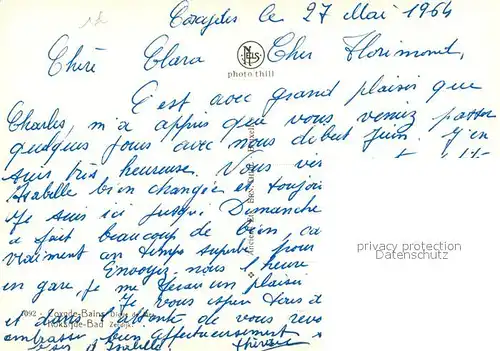 Coxydes le 27 Mai 1964
Chère Clara Cher Florimond,
NELS
photo thill
C'est avec grand plaisir que
Charles, m'a appris que vous veniez passer
quelques jours avec nous début Juin. J'en
suis très heureuse. Vous
Isabelle bien changée et toujou
Je suis ici jusqu. Demanche
a fait beaucoup de bien, ca
vraiment un temps superbe pour
Envoyez-nous l'heure
en gare, je me un plaisir
Je vous
et dans l'attente de vous revo
embrasse bien affectueusement
d'Isabelle Thérèse
privacy protection
Datenschutz
Coxyde-Bains
Koksijde-Bad